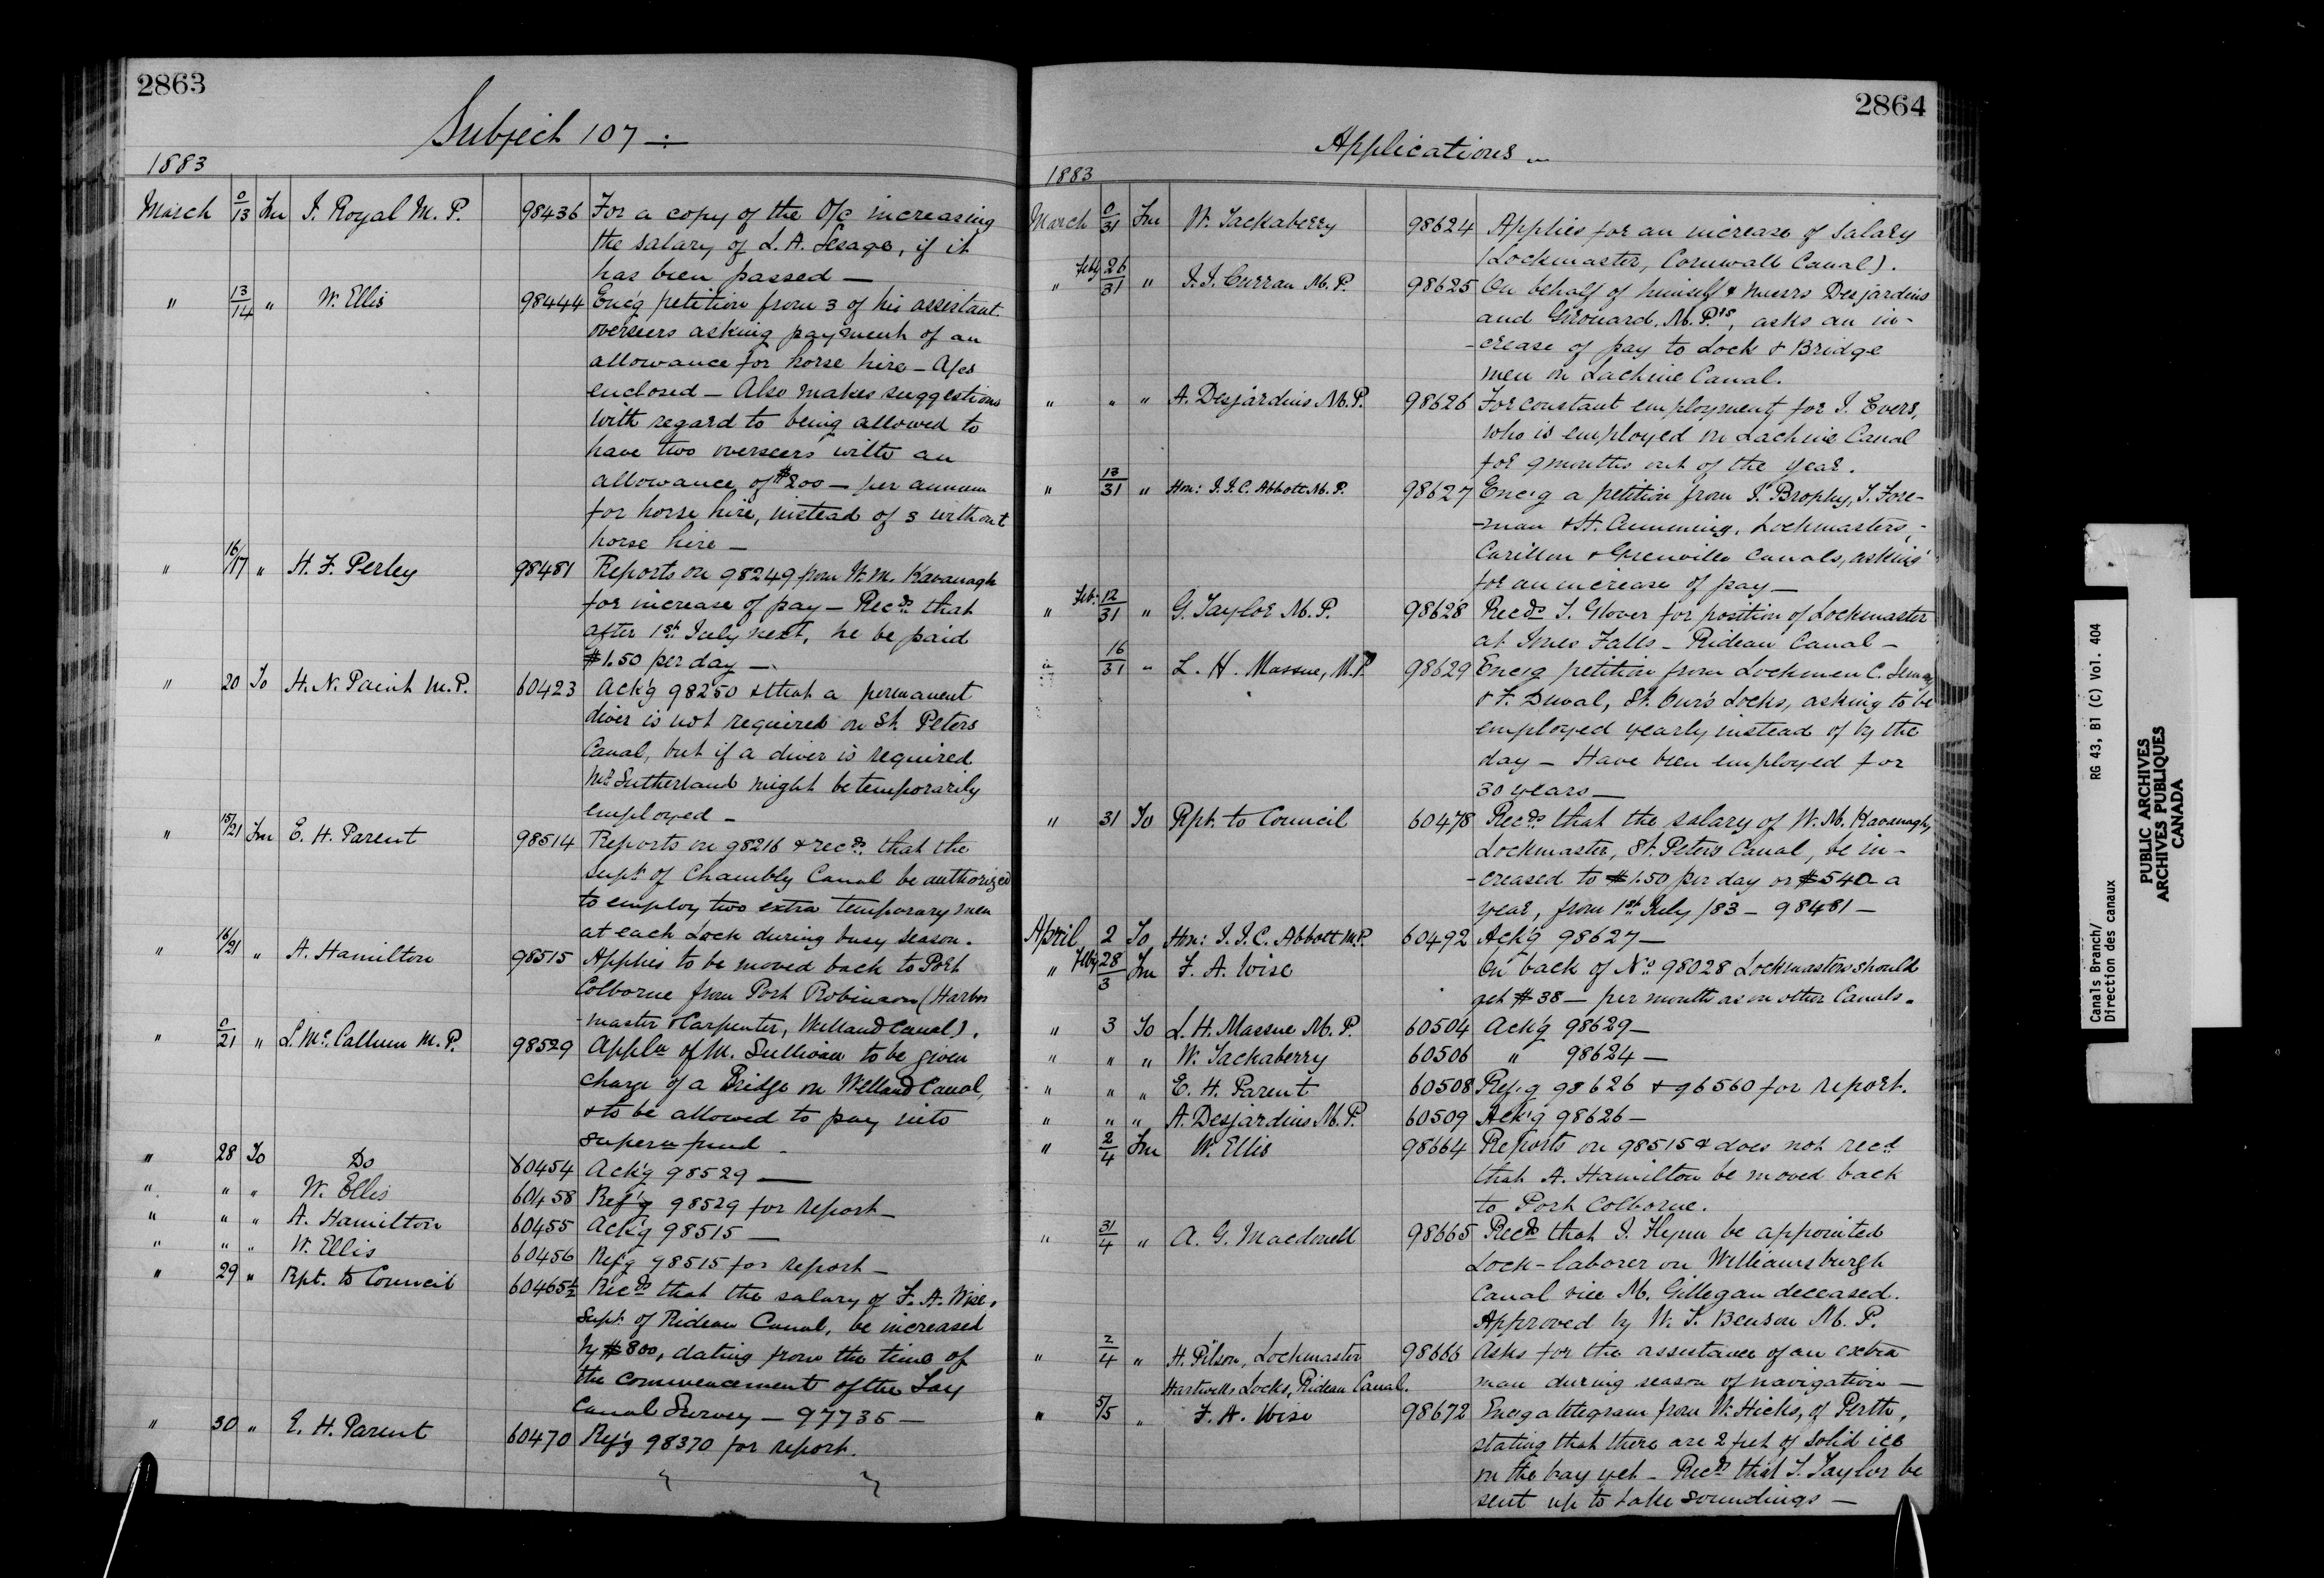 2863
Subject 107
1883
March 0/13 Fm J. Royal M.P. 98436 For a copy of the O/c increasing
the salary of L. A. Lesage, if it
has been passed —
" 13/14 " W. Ellis 98444 Enc'g petition from 3 of his assistant
overseers asking payment of an
allowance for horse hire — A/cs
enclosed — Also makes suggestions
with regard to being allowed to
have two overseers with an
allowance of $200 — per annum
for horse hire, instead of 3 without
horse hire —
" 16/17 " H. F. Perley 98481 Reports on 98249 from W. M. Kavanagh
for increase of pay — Recds. that
after 1st July next, he be paid
$1.50 per day —
" 20 To H. N. Paint M.P. 60423 Ack'g 98250 & that a permanent
diver is not required on St. Peters
Canal, but if a diver is required
Mr. Sutherland might be temporarily
employed —
" 15/21 Fm E. H. Parent 98514 Reports on 98216 & recds. that the
Supt. of Chambly Canal be authorized
to employ two extra temporary men
at each Lock during busy season.
" 16/21 " A. Hamilton 98515 Applies to be moved back to Port
Colborne from Port Robinson (Harbor
-master & Carpenter, Welland Canal).
" 0/21 " L. McCallum M.P. 98529 Appln of M. Sullivan to be given
charge of a Bridge on Welland Canal,
& to be allowed to pay into
supern fund —
" 28 To Do 60454 Ack'g 98529 —
" " " W. Ellis 60458 Ref'g 98529 for report —
" " " A. Hamilton 60455 Ack'g 98515 —
" " " W. Ellis 60456 Ref'g 98515 for report —
" 29 " Rpt. to Council 60465½ Recds that the salary of F. A. Wise,
Supt. of Rideau Canal, be increased
by $800, dating from the time of
the commencement of the Tay
Canal Survey — 97735 —
" 30 " E. H. Parent 60470 Ref'g 98370 for report.
2864
Applications
1883
March 0/31 Fm W. Tackaberry 98624 Applies for an increase of salary
(Lockmaster, Cornwall Canal).
" Feby 26/31 " J. J. Curran M.P. 98625 On behalf of himself & Messrs Desjardins
and Girouard, M.P.'s, asks an in-
-crease of pay to Lock & Bridge
men on Lachine Canal.
" " " A. Desjardins M.P. 98626 For constant employment for J. Evers,
who is employed on Lachine Canal
for 9 months out of the year.
" 13/31 " Hon: J. J. C. Abbott M.P. 98627 Enc'g a petition from J. Brophy, J. Fore-
-man & H. Cumming, Lockmasters,
Carillon & Grenville Canals, asking
for an increase of pay —
" Feb: 12/31 " G. Taylor M.P. 98628 Recds J. Glover for position of Lockmaster
at Falls — Rideau Canal —
" 16/31 " L. H. Massue, M.P. 98629 Enc'g petition from Lockmen C.
& F. Duval, St. Ours Locks, asking to be
employed yearly instead of by the
day — Have been employed for
30 years —
" 31 To Rpt. to Council 60478 Recds. that the salary of W. M. Kavanagh,
Lockmaster, St. Peters Canal, be in-
-creased to $1.50 per day or $540 a
year, from 1st July /83 — 98481 —
April 2 To Hon: J. J. C. Abbott M.P. 60492 Ack'g 98627 —
" Feby 28/3 Fm F. A. Wise On back of No. 98028 Lockmasters should
get $38 — per month as on other Canals.
" 3 To L. H. Massue M.P. 60504 Ack'g 98629 —
" " " W. Tackaberry 60506 " 98624 —
" " " E. H. Parent 60508 Ref'g 98626 & 96560 for report.
" " " A. Desjardins M.P. 60509 Ack'g 98626 —
" 2/4 Fm W. Ellis 98664 Reports on 98515 & does not recd
that A. Hamilton be moved back
to Port Colborne.
" 31/4 " A. G. Macdonell 98665 Recds that J. Flynn be appointed
Lock-laborer on Williamsburgh
Canal vice M. Gillegan deceased.
Approved by W. T. Benson M.P.
" 2/4 " H. Pilson, Lockmaster 98666 Asks for the assistance of an extra
Hartwells Locks, Rideau Canal. man during season of navigation —
" 5/5 " F. A. Wise 98672 Enc'g a telegram from W. Hicks, of Perth,
stating that there are 2 feet of solid ice
on the bay yet — Recds that J. Taylor be
sent up to take soundings —
Canals Branch/ RG 43, B1 (C) Vol. 404
Direction des canaux
PUBLIC ARCHIVES
ARCHIVES PUBLIQUES
CANADA